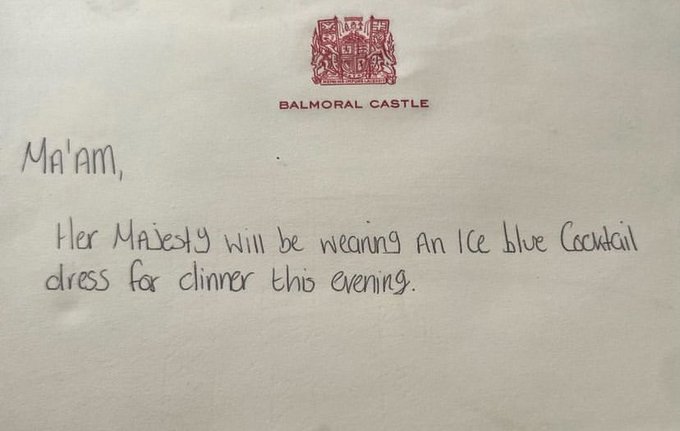 BALMORAL CASTLE
MA'AM,
Her MAJesty will be wearing An Ice blue Cocktail
dress for dinner this evening.